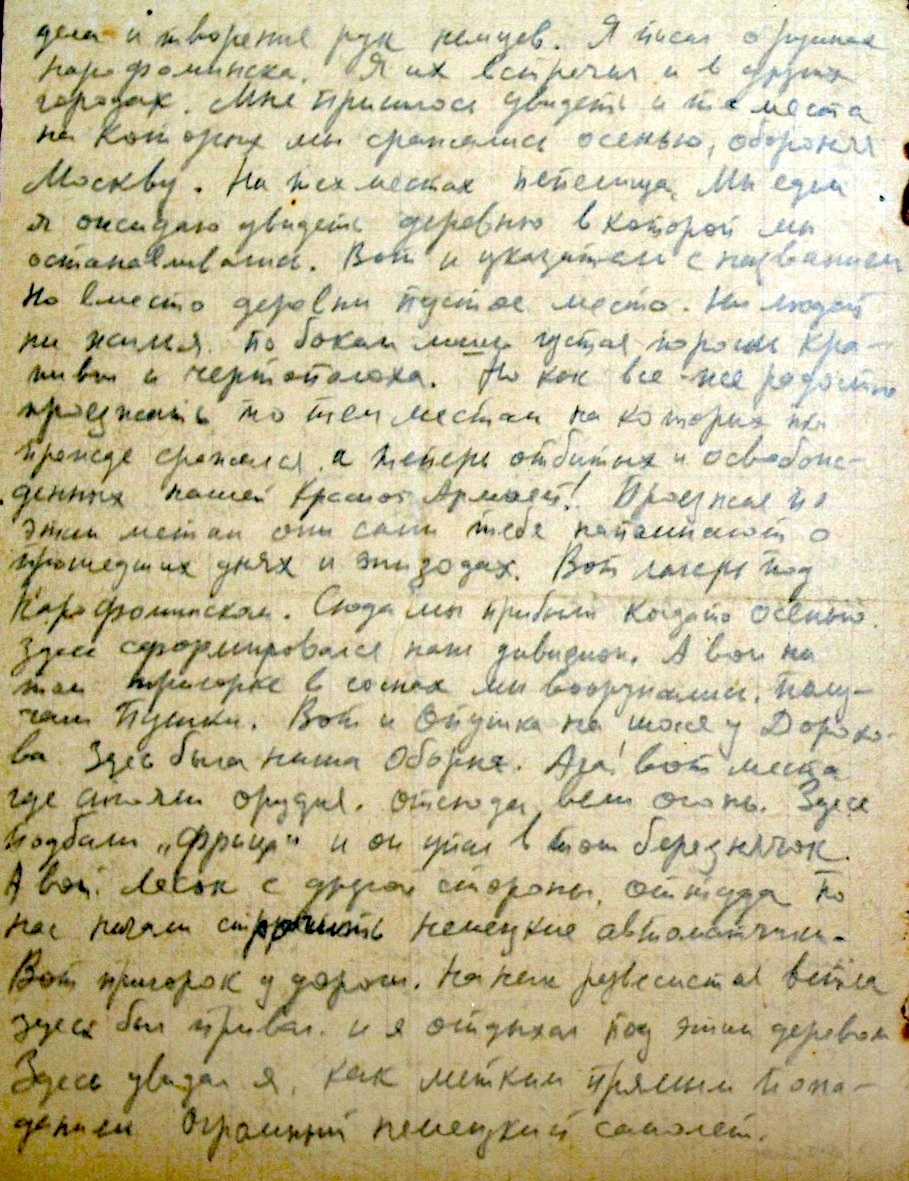 дела и творение рук немцев. Я писал о руинах
Нарофоминска. Я их встречал и в других
городах. Мне пришлось увидеть и те места
на которых мы сражались осенью, обороняя
Москву. На тех местах пепелища. Мы едем
я ожидаю увидеть деревню в которой мы
останавливались. Вот и указатель с названием
Но вместо деревни пустое место. Ни людей
ни жилья. По бокам лишь густая поросль кра-
пивы и чертополоха. Но как все-же радостно
проезжать по тем местам на которых ты
прежде сражался, а теперь отбитых и освобож-
денных нашей Красной Армией! Проезжая по
этим метам они сами тебе напоминают о
прошедших днях и эпизодах. Вот лагерь под
Нарофоминском. Сюда мы прибыли когдато осенью.
Здесь сформировался наш дивизион. А вон на
том пригорке в соснах мы вооружались. Полу-
чали пушки. Вот и опушка на шоссе у Дорохо-
ва. Здесь была наша оборна. Ага! вот места
где стояли орудия. отсюда вели огонь. Здесь
подбали „фрица" и он упал в тот березнячок.
А вот лесок с другой стороны, оттуда по
нас начали строчить немецкие автоматчики.
Вот пригорок у дороги. На нем развесистая ветла
здесь был привал. и я отдыхал под этим деревом
Здесь увидал я, как метким прямым попа-
данием огромный немецкий самолет.